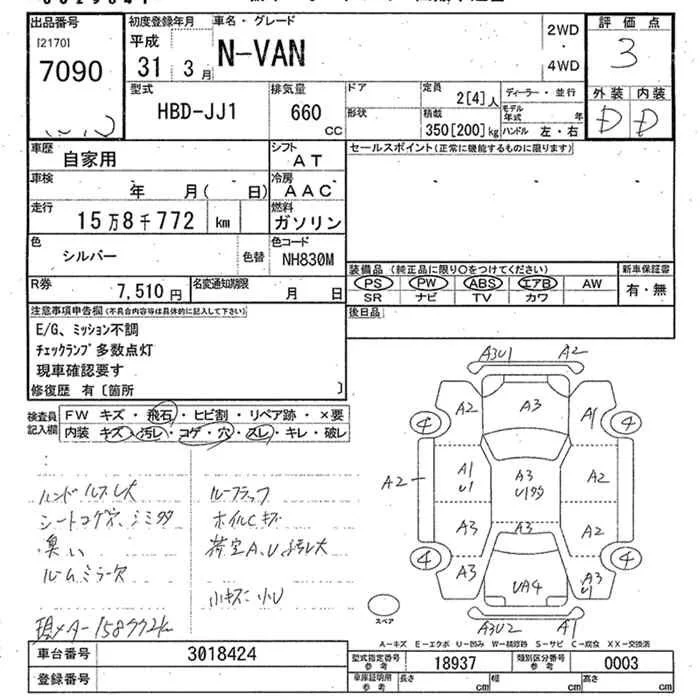 出品番号
[2170]
7090
初度登録年月
平成
31 3月
車名・グレード
N-VAN
2WD
・
4WD
評価点
3
外装 内装
D D
型式
HBD-JJ1
排気量
660
CC
ドア
形状
定員
2[4]人
積載
350[200]kg
ディーラー・並行
モデル年式 年
ハンドル 左・右
車歴
自家用
シフト
AT
セールスポイント(正常に機能するものに限ります)
車検
年 月( 日)
冷房
AAC
走行
15万8千772 km
燃料
ガソリン
色
シルバー
色替
色コード
NH830M
装備品 (純正品に限り○をつけてください)
新車保証書
PS PW ABS エアB AW
SR ナビ TV カワ
有・無
R券
7,510円
名変通知期限
月 日
後日品
注意事項申告欄(不具合内容等は具体的に記入して下さい)
E/G、ミッション不調
チェックランプ多数点灯
現車確認要す
修復歴 有〔箇所 〕
検査員記入欄
FW キズ・飛石・ヒビ割・リペア跡・×要
内装 キズ・汚レ・コゲ・穴・スレ・キレ・破レ
ハンドルスレ大
シートコゲ穴、シミ多
臭い
ルームミラー欠
現メーター158772km
ルーフラック
ホイルCキズ
荷室A、U汚レ大
小キズ・小U
A3U1 A2
A2 A3 A1
4 4
A2 A1 U1 A3 U1多 A2
A3 A3 A2
4 4
A3 UA4 A3 U1
A3U2 A1
スペア
A－キズ E－エクボ U－凹み W－補修跡 S－サビ C－腐食 XX－交換済
車台番号
3018424
登録番号
型式指定番号
参考
18937
類別区分番号
参考
0003
車庫証明用
参考
長さ cm
幅 cm
高さ cm